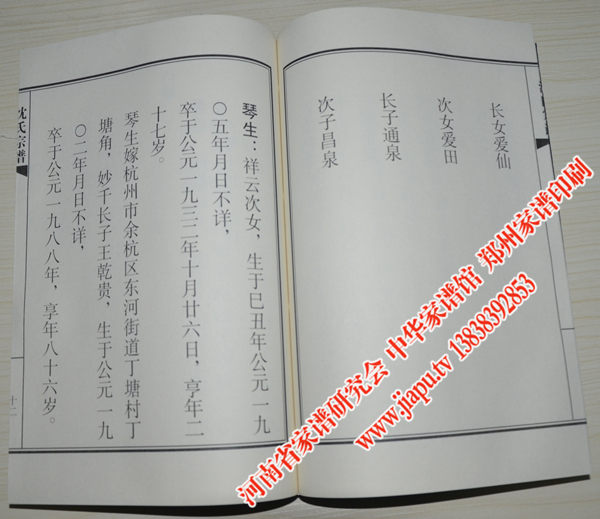 长女爱仙
次女爱田
长子通泉
次子昌泉
琴生：祥云次女，生于巳丑年公元一九
〇五年月日不详，
卒于公元一九三二年十月廿六日，享年二
十七岁。
琴生嫁杭州市余杭区东河街道丁塘村丁
塘角，妙千长子王乾贵，生于公元一九
〇二年月日不详，
卒于公元一九八八年，享年八十六岁。
沈氏宗谱
河南省家谱研究会 中华家谱馆 郑州家谱印刷
www.jiapu.tv 13838392853